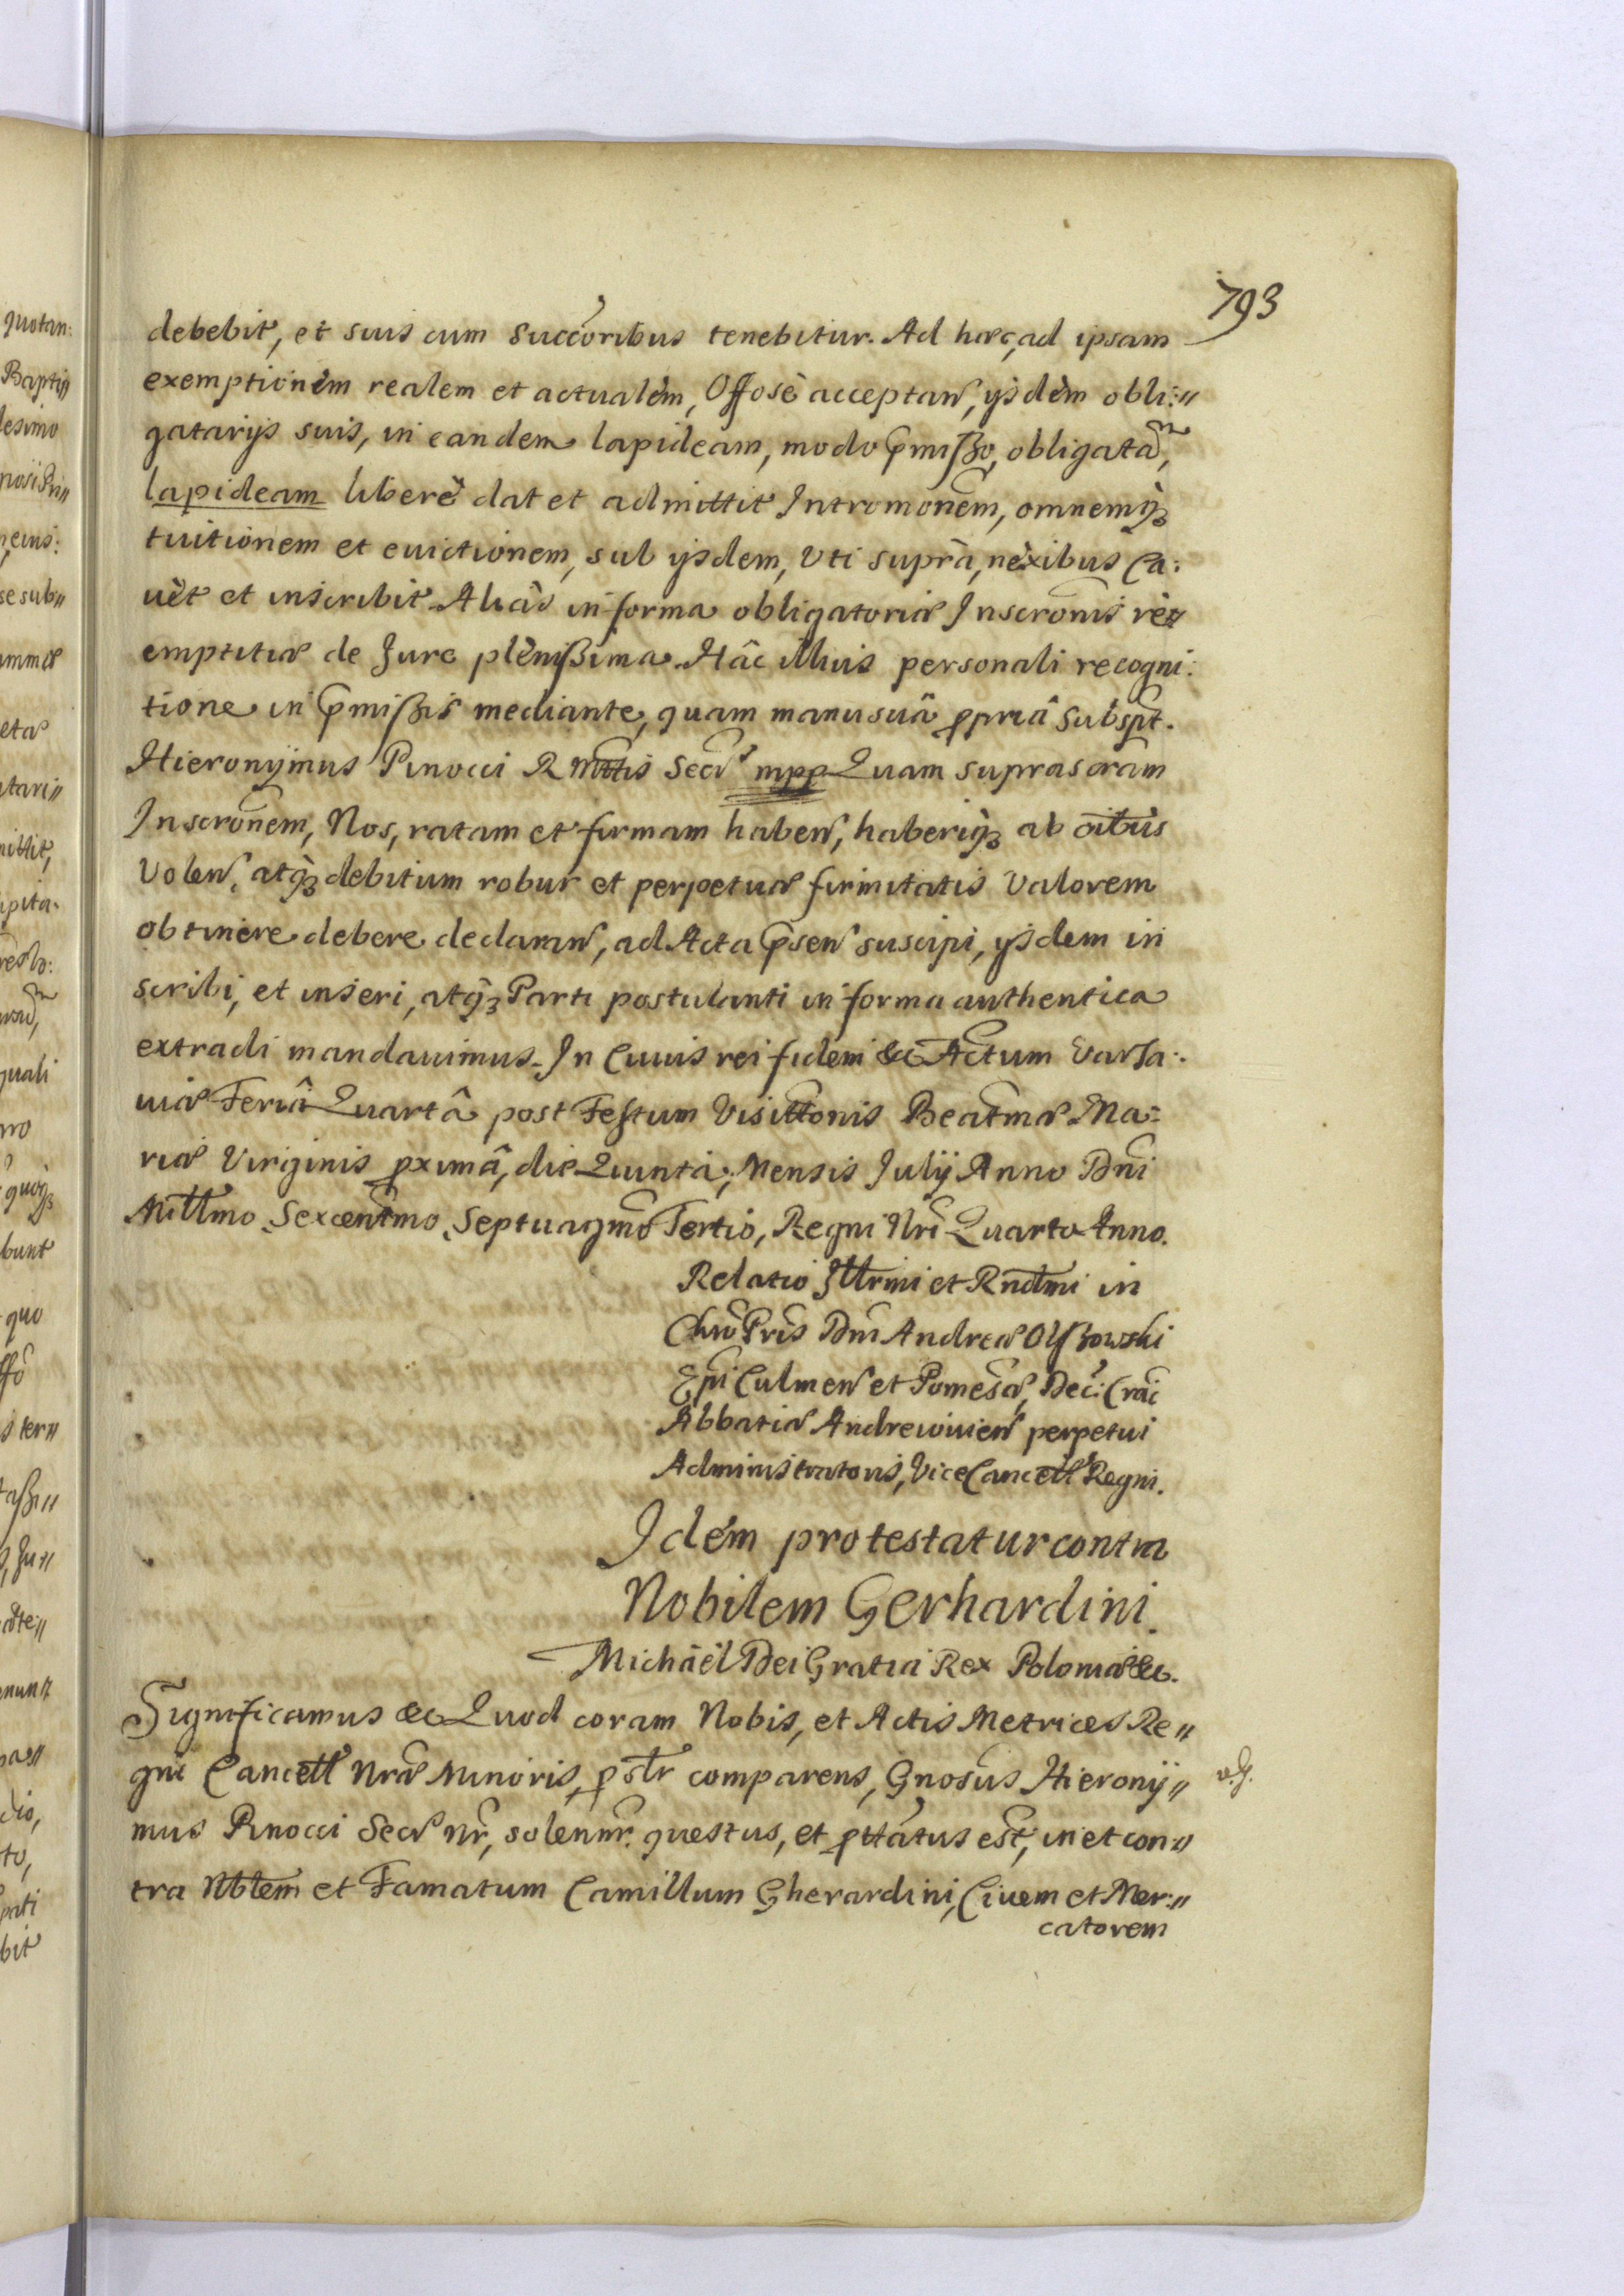 793
debebit, et suis cum Succoribus tenebitur. Ad haec, ad ipsam
exemptionem realem et actualem, Offose acceptan, ijsdem obli:
gatarijs suis, in eandem lapideam, modo pmisso, obligatam,
lapideam liberè dat et admittit Intromonem, omnemq3
tuitionem et euictionem, sub ijsdem, Vti suprà, nexibus Ca:
uet et inscribit. Aliàs in forma obligatoriae Inscronis re
emptitiae de Jure plenissima. Hâc illius personali recogni:
tione in pmissis mediante, quam manu suâ ppriâ Subspt.
Hieronymus Pinocci R Mttis Secr mpp Quam suprascram
Inscronem, Nos, ratam et firmam haben, haberiq3 ab oibus
Volen, atq3 debitum robur et perpetuae firmitatis Valorem
obtinere debere declaran, ad Acta psen suscipi, ijsdem in
scribi, et inseri, atq3 Parti postulanti in forma authentica
extradi mandauimus. In Cuius rei fidem &c Actum Varsa:
uiae Feriâ Quartâ post Festum Visittonis Beatmae Ma:
riae Virginis pximâ, die Quinta, Mensis Julij Anno Dni
Millmo Sexcentmo Septuagmo Tertio, Regni Nri Quarto Anno.
Relatio Illrmi et Rndmi in
Chro Pris Dni Andreae Olszowski
Epi Culmen et Pomesa, Dec: Crac
Abbatiae Andreiouien perpetui
Administratoris, Vice Cancell Regni.
Idem protestatur contra
Nobilem Gerhardini.
Michaël Dei Gratia Rex Poloniae &c.
Significamus &c Quod coram Nobis, et Actis Metrices Re
gni Cancell Nrae Minoris, pstr comparens, Gnosus Hierony
mus Pinocci Secr Nr, solennr. questus, et pttatus est, in et con
tra Nblem et Famatum Camillum Gherardini, Ciuem et Mer:
catorem